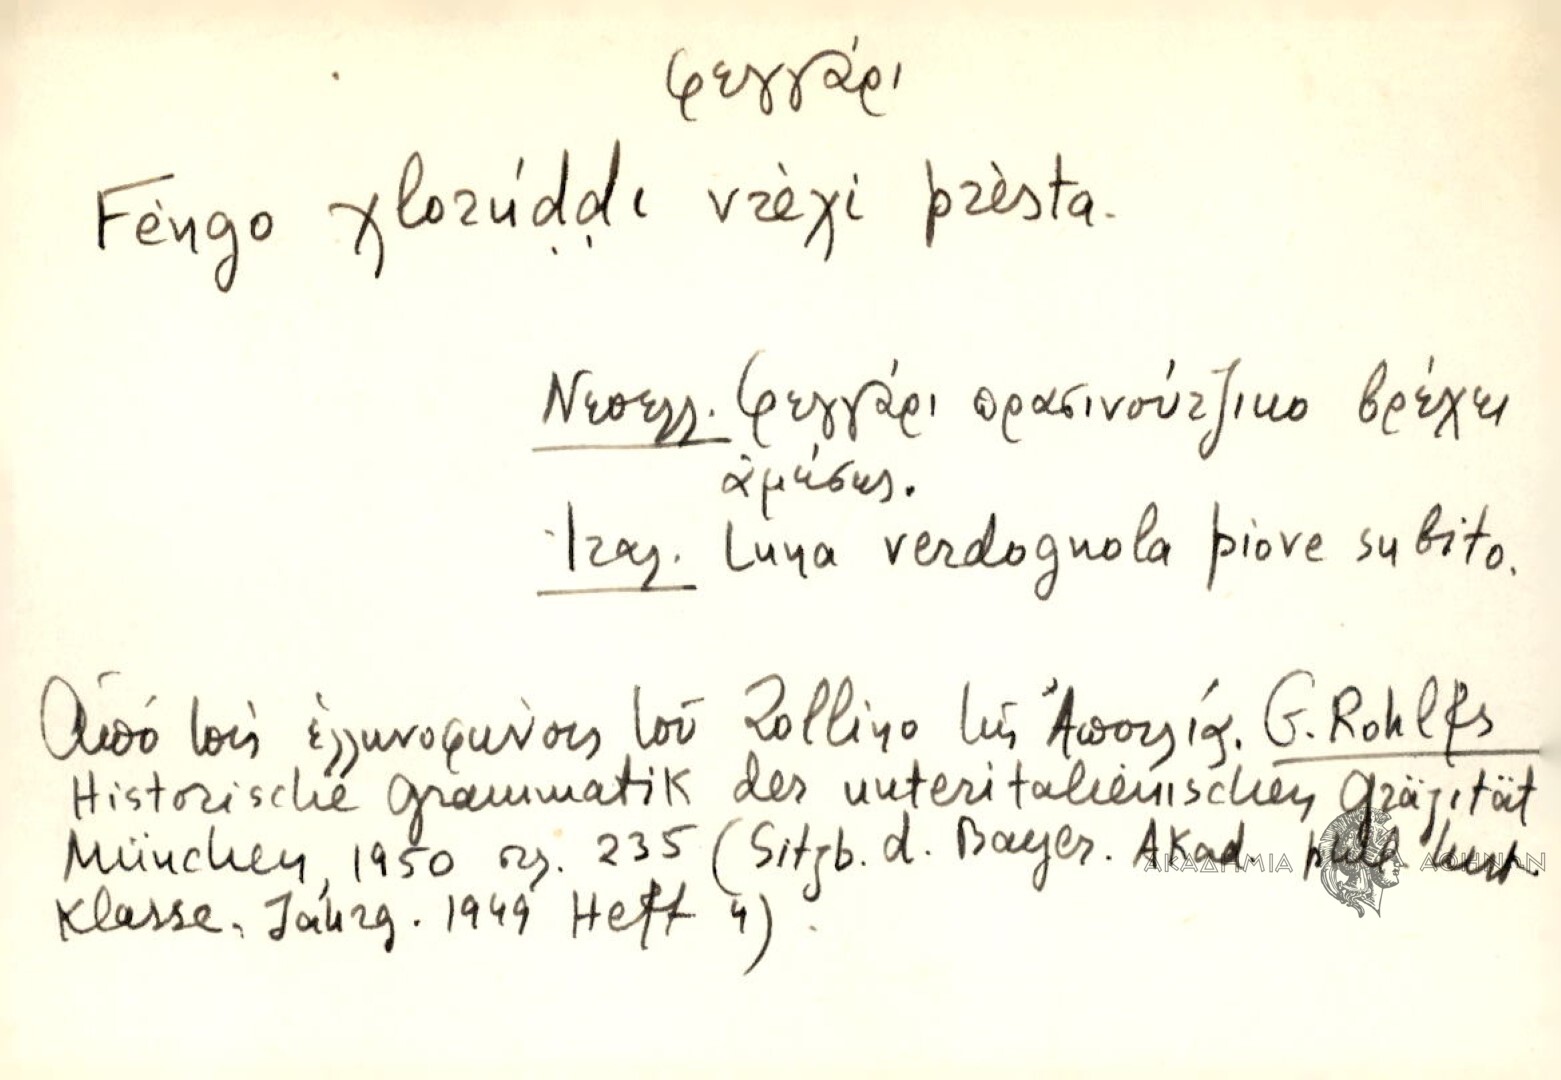 φεγγάρι
Fèngo χlorúḍḍi vrèχi prèsta.
Νεοελλ. Φεγγάρι πρασινούτζικο βρέχει
ἀμέσως.
Ἰταλ. Luna verdognola piove subito.
Ἀπό τούς ἑλληνοφώνους τοῦ Zollino τῆς Ἀπουλίας. G. Rohlfs
Historische Grammatik der unteritalienischen Gräzität
München, 1950 σλ. 235 (Sitzb. d. Bayer. Akad. phil hist.
Klasse. Jahrg. 1949 Heft 4).
ΑΚΑΔΗΜΙΑ ΑΘΗΝΩΝ